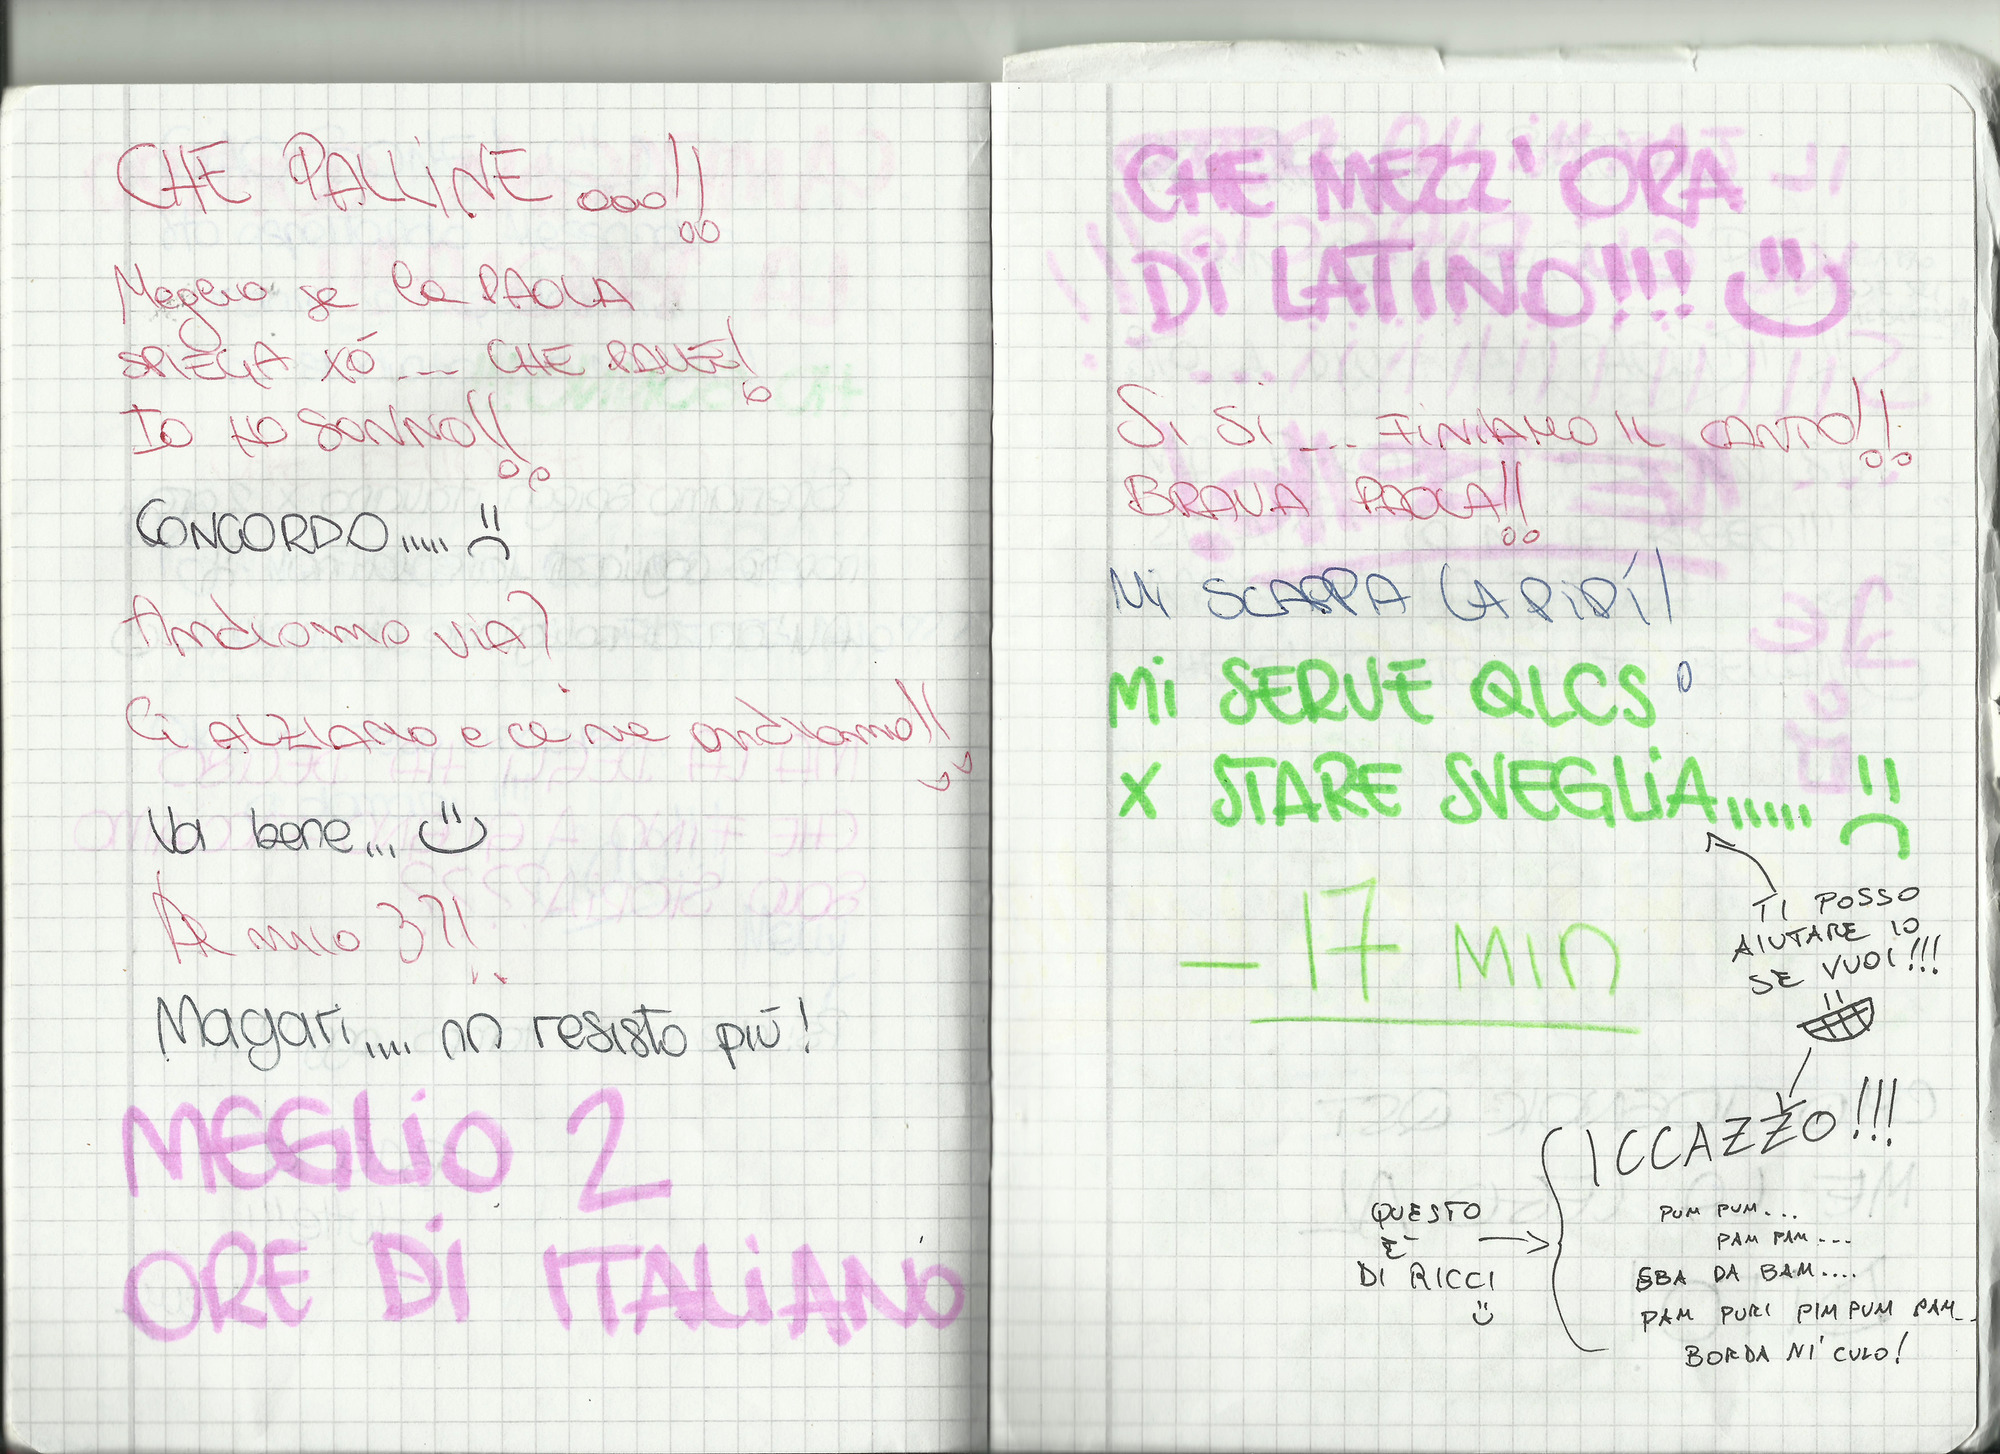 CHE PALLINE ooo!!
Meglio se la PAOLA
SPIEGA XÓ ... CHE PALLE!
Io HO SONNO!!
CONCORDO.....
Andiamo VIA?
Ci ALZIAMO e ce ne andiamo!!
Va bene...
Al mio 3?!
Magari.... nn resisto più!
MEGLiO 2
ORE Di iTALiANO
CHE MEZZ'ORA
Di LATiNO!!!
Si Si ... FINIAMO IL CANTO!!
BRAVA PAOLA!!
Mi SCAPPA LA PIPÍ!
Mi SERVE QLCS
X STARE SVEGLiA.....
TI POSSO
AIUTARE IO
SE VUOI!!!
-17 MIN
ICCAZZO!!!
QUESTO
È
DI RICCI
PUM PUM...
PAM PAM...
SBA DA BAM....
PAM PURI PIM PUM PAM..
BORDA NI' CULO!